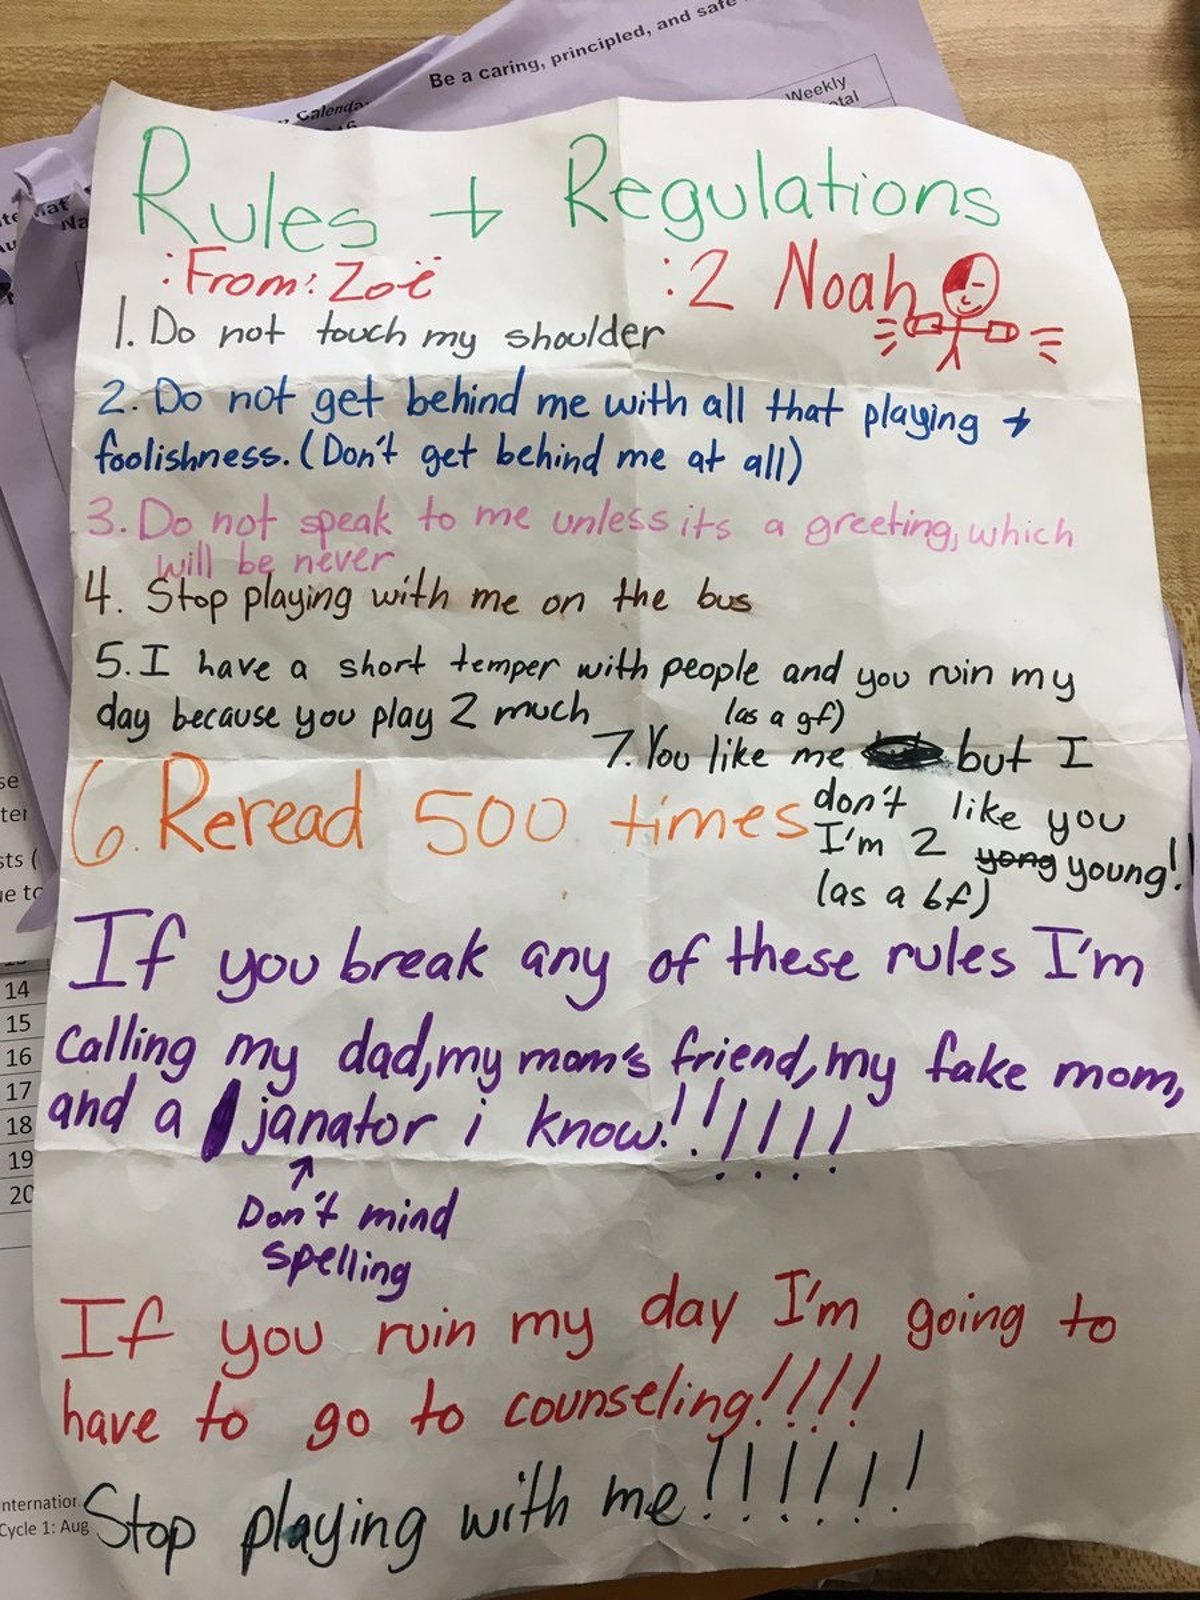 Be a caring, principled, and safe
Calenda
Weekly
otal
Rules + Regulations
:From: Zoë :2 Noah
1. Do not touch my shoulder
2. Do not get behind me with all that playing +
foolishness. (Don't get behind me at all)
3. Do not speak to me unless its a greeting, which
will be never
4. Stop playing with me on the bus
5. I have a short temper with people and you ruin my
day because you play 2 much
6. Reread 500 times
(as a gf)
7. You like me but I
don't like you
I'm 2 yong young!!
(as a bf)
If you break any of these rules I'm
calling my dad, my mom's friend, my fake mom,
and a janator i know!!!!!!!
Don't mind
spelling
If you ruin my day I'm going to
have to go to counseling!!!!
Stop playing with me!!!!!!
14
15
16
17
18
19
20
Cycle 1: Aug